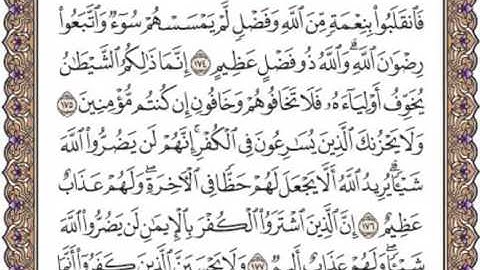 فَٱنقَلَبُوا۟ بِنِعْمَةٍ مِّنَ ٱللَّهِ وَفَضْلٍ لَّمْ يَمْسَسْهُمْ سُوٓءٌ وَٱتَّبَعُوا۟
رِضْوَٰنَ ٱللَّهِ ۗ وَٱللَّهُ ذُو فَضْلٍ عَظِيمٍ ۝١٧٤ إِنَّمَا ذَٰلِكُمُ ٱلشَّيْطَٰنُ
يُخَوِّفُ أَوْلِيَآءَهُۥ فَلَا تَخَافُوهُمْ وَخَافُونِ إِن كُنتُم مُّؤْمِنِينَ ۝١٧٥
وَلَا يَحْزُنكَ ٱلَّذِينَ يُسَٰرِعُونَ فِى ٱلْكُفْرِ ۚ إِنَّهُمْ لَن يَضُرُّوا۟ ٱللَّهَ
شَيْـًٔا ۗ يُرِيدُ ٱللَّهُ أَلَّا يَجْعَلَ لَهُمْ حَظًّا فِى ٱلْءَاخِرَةِ ۖ وَلَهُمْ عَذَابٌ
عَظِيمٌ ۝١٧٦ إِنَّ ٱلَّذِينَ ٱشْتَرَوُا۟ ٱلْكُفْرَ بِٱلْإِيمَٰنِ لَن يَضُرُّوا۟ ٱللَّهَ
شَيْـًٔا ۖ وَلَهُمْ عَذَابٌ أَلِيمٌ ۝١٧٧ وَلَا يَحْسَبَنَّ ٱلَّذِينَ كَفَرُوٓا۟ أَنَّمَا